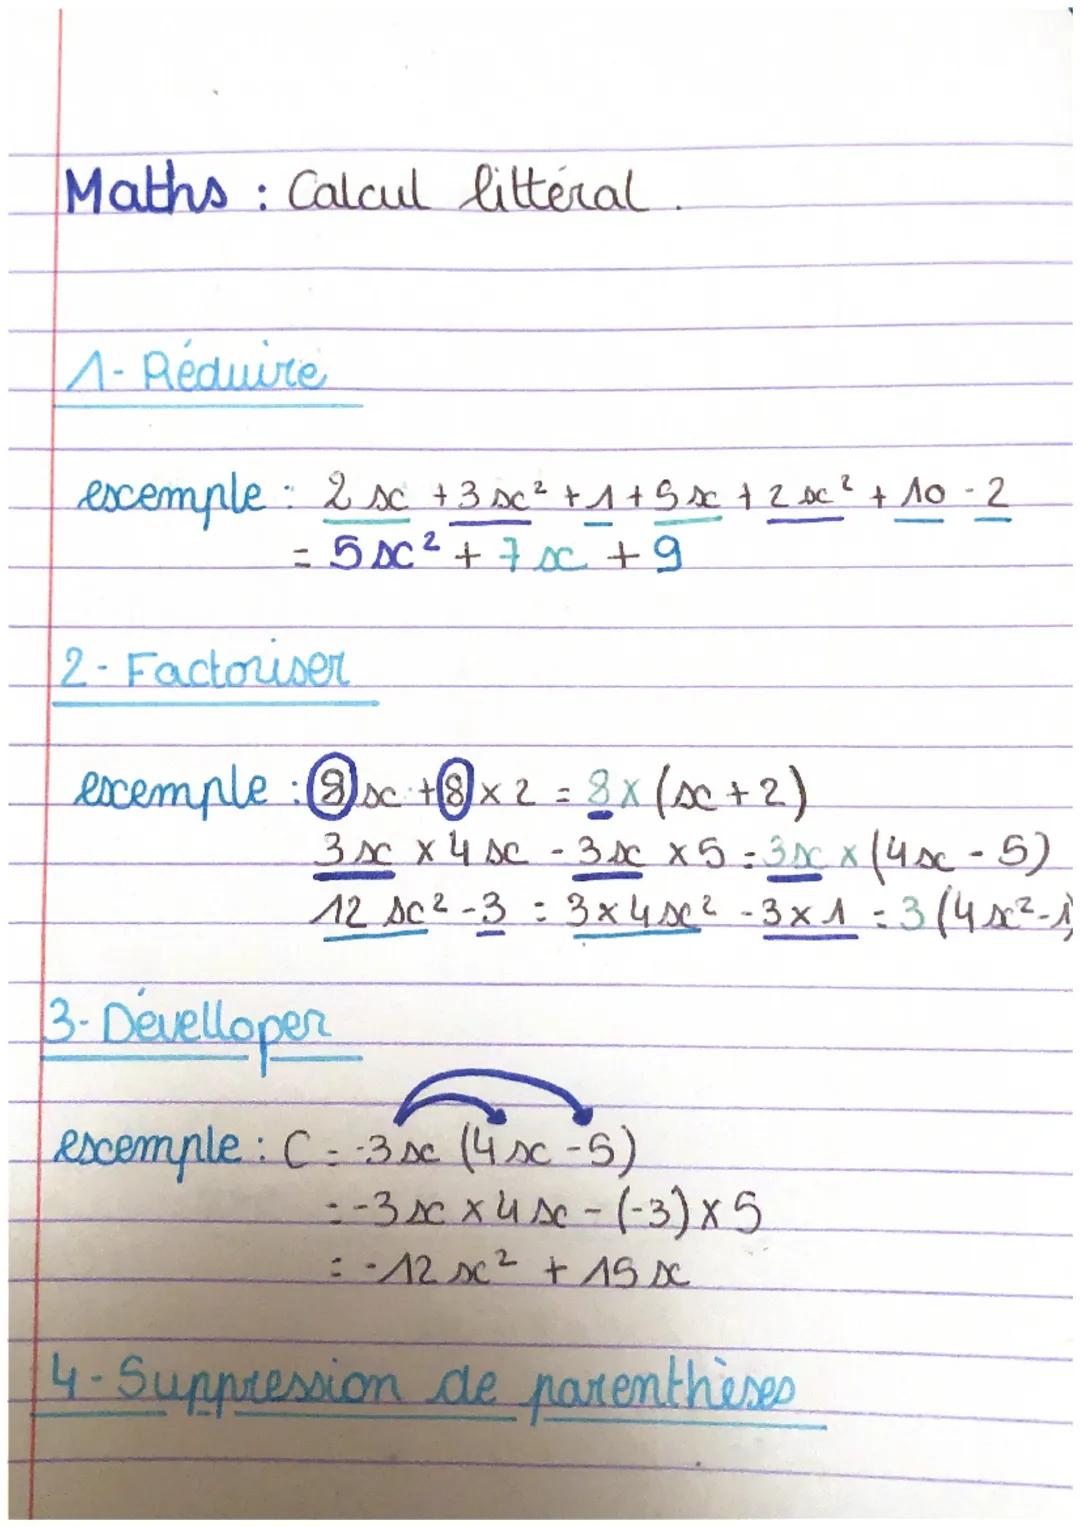 Maths : Calcul littéral.
1- Réduire
exemple : 2x + 3x² + 1 + 5x + 2x² + 10 - 2
= 5x² + 7x + 9
2- Factoriser
exemple : 8x + 8 × 2 = 8 × (x + 2)
3x × 4x - 3x × 5 = 3x × (4x - 5)
12x² - 3 = 3 × 4x² - 3 × 1 = 3 (4x² - 1)
3- Dévelloper
exemple : C = -3x (4x - 5)
= -3x × 4x - (-3) × 5
= -12x² + 15x
4- Suppression de parenthèses